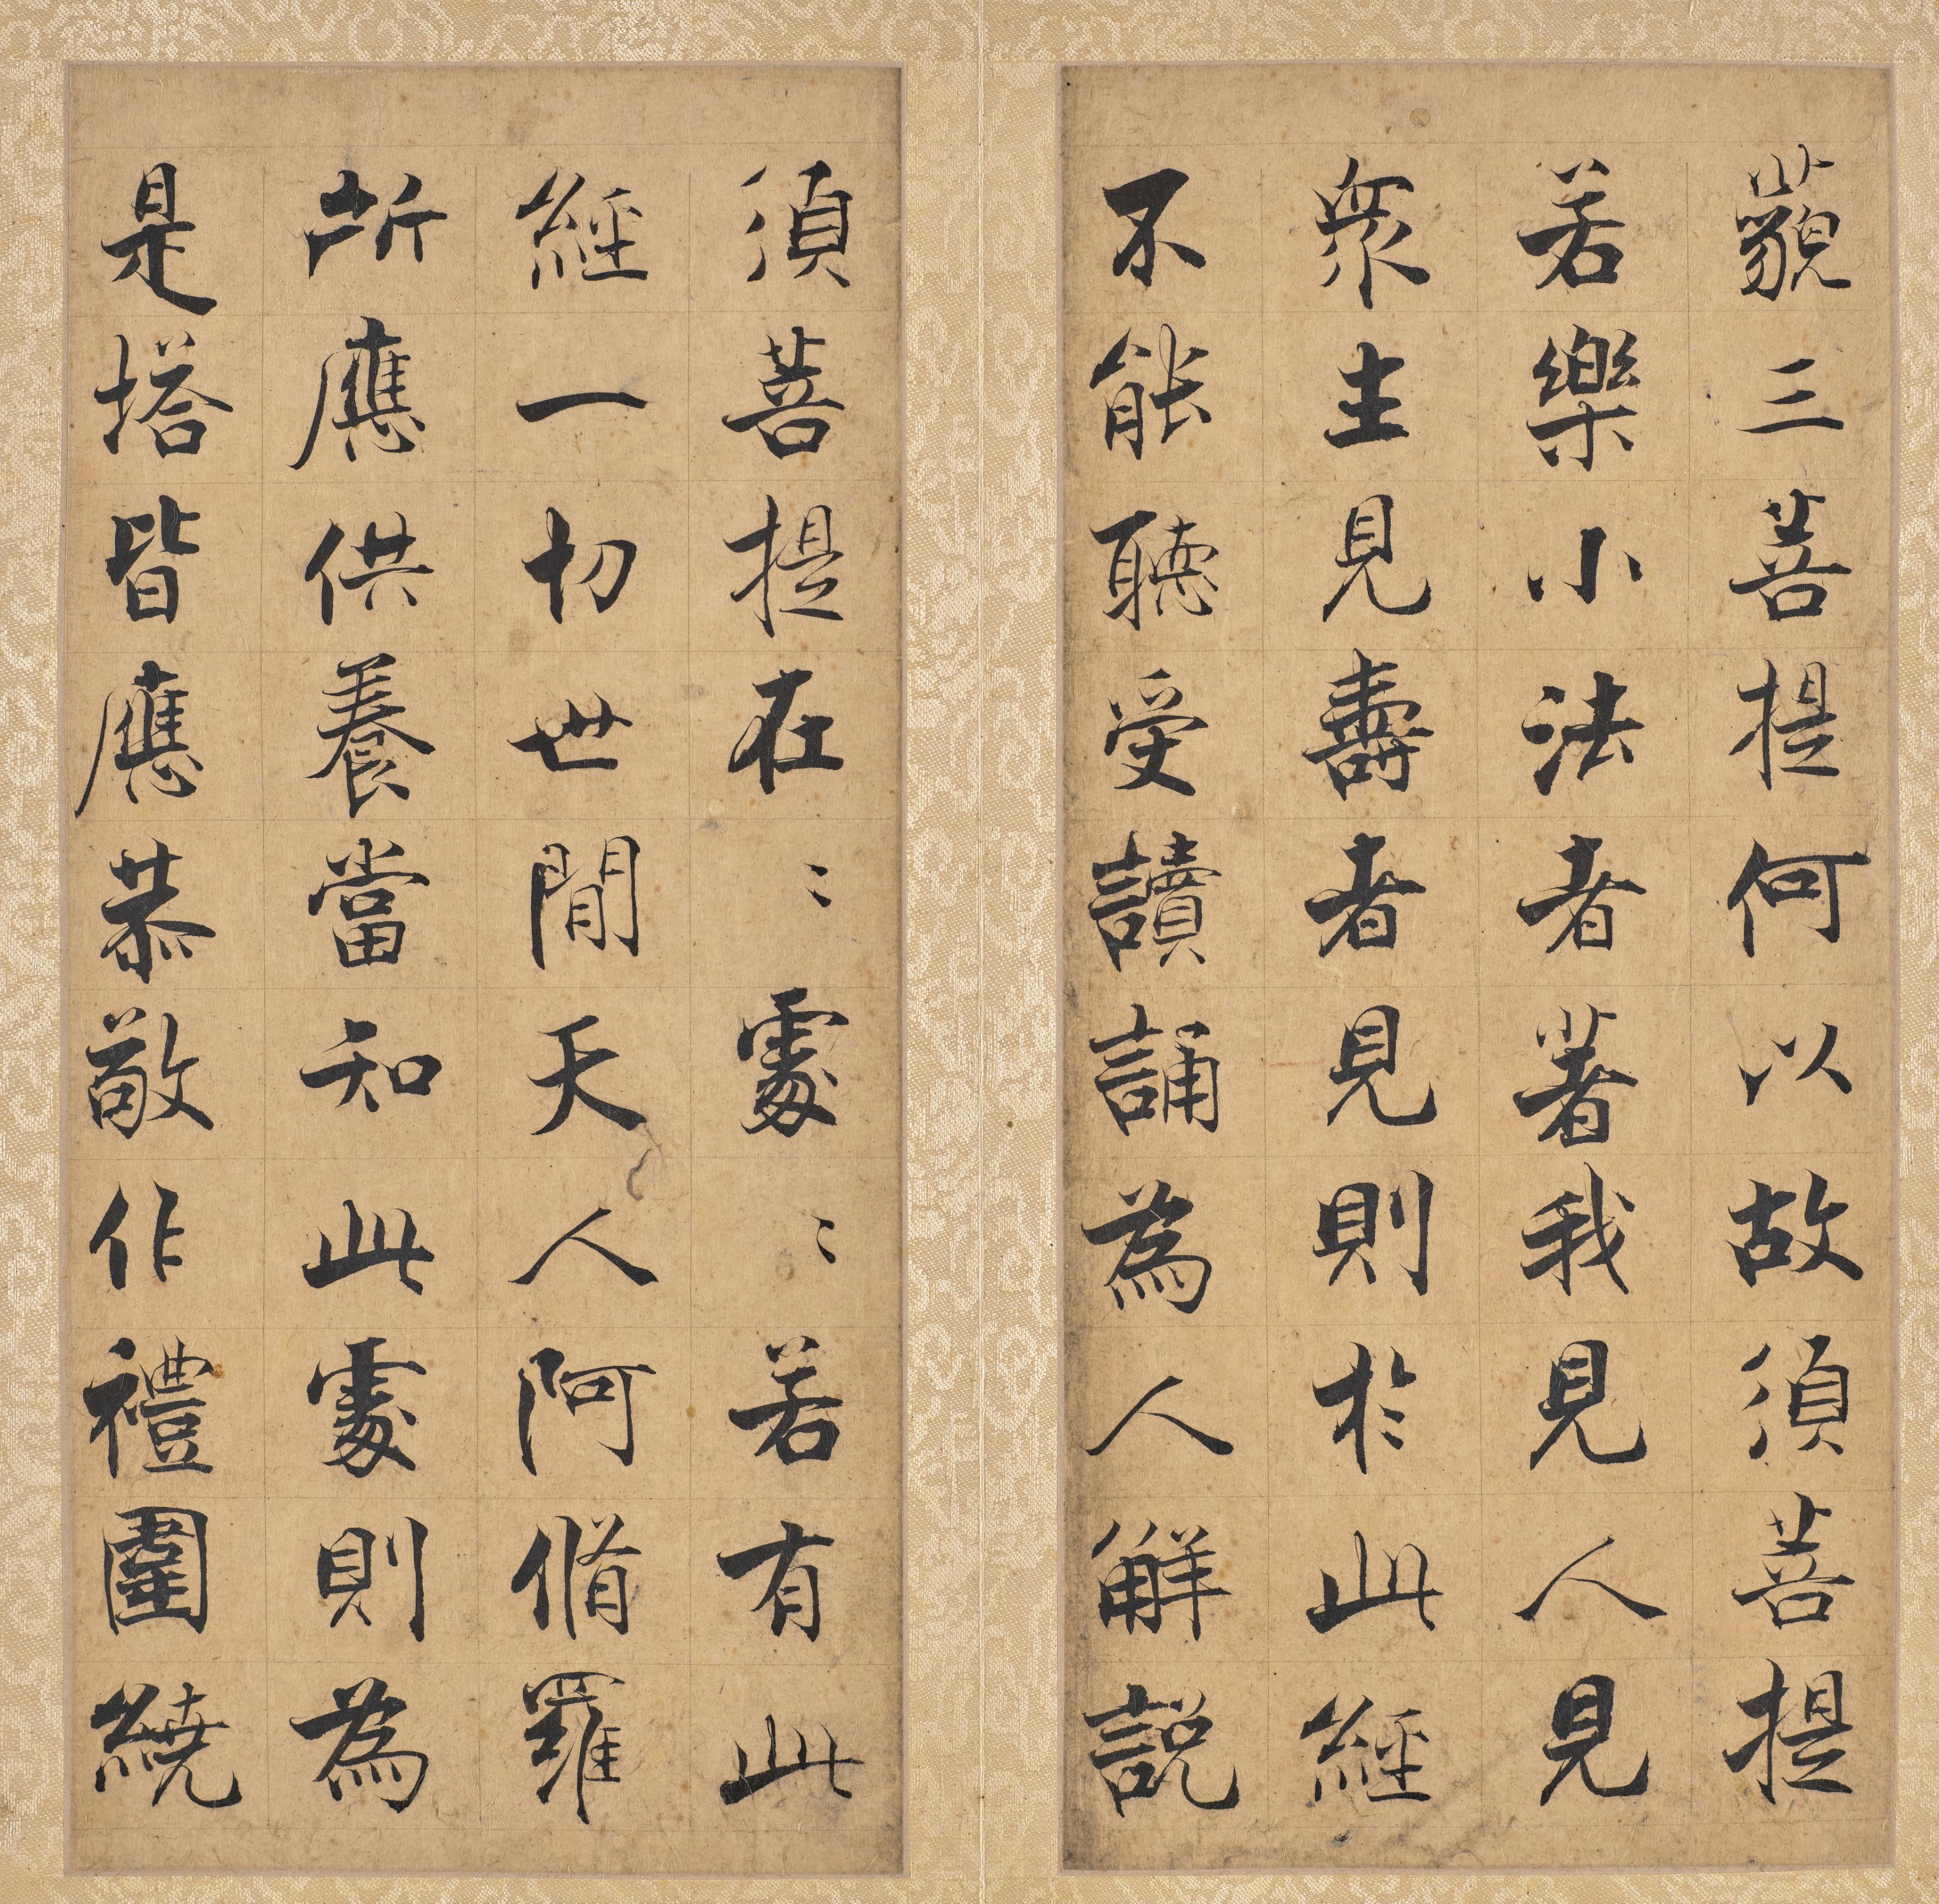 藐三菩提何以故須菩提
若樂小法者著我見人見
衆生見壽者見則於此經
不能聽受讀誦為人解說
須菩提在〻處〻若有此
經一切世閒天人阿脩羅
所應供養當知此處則為
是塔皆應恭敬作禮圍繞